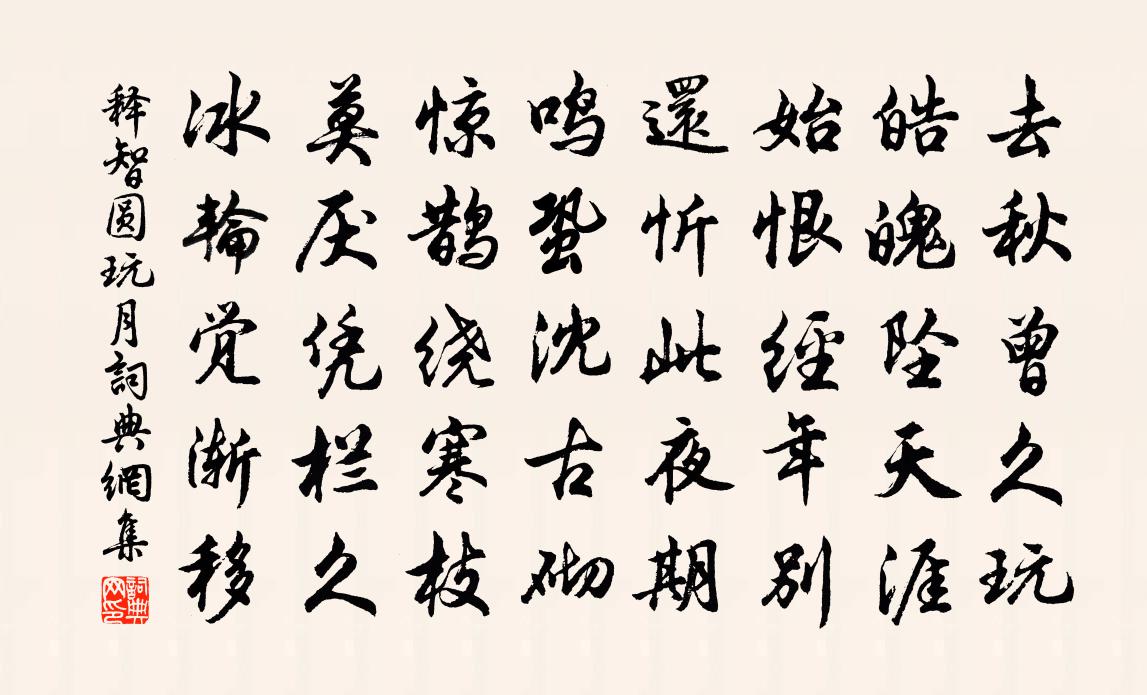 去秋曾久玩
皓魄坠天涯
始恨經年别
還忻此夜期
鸣蛩沈古砌
惊鹊绕寒枝
莫厌凭栏久
冰輪觉渐移
释智圆玩月詞典網集
詞典网印